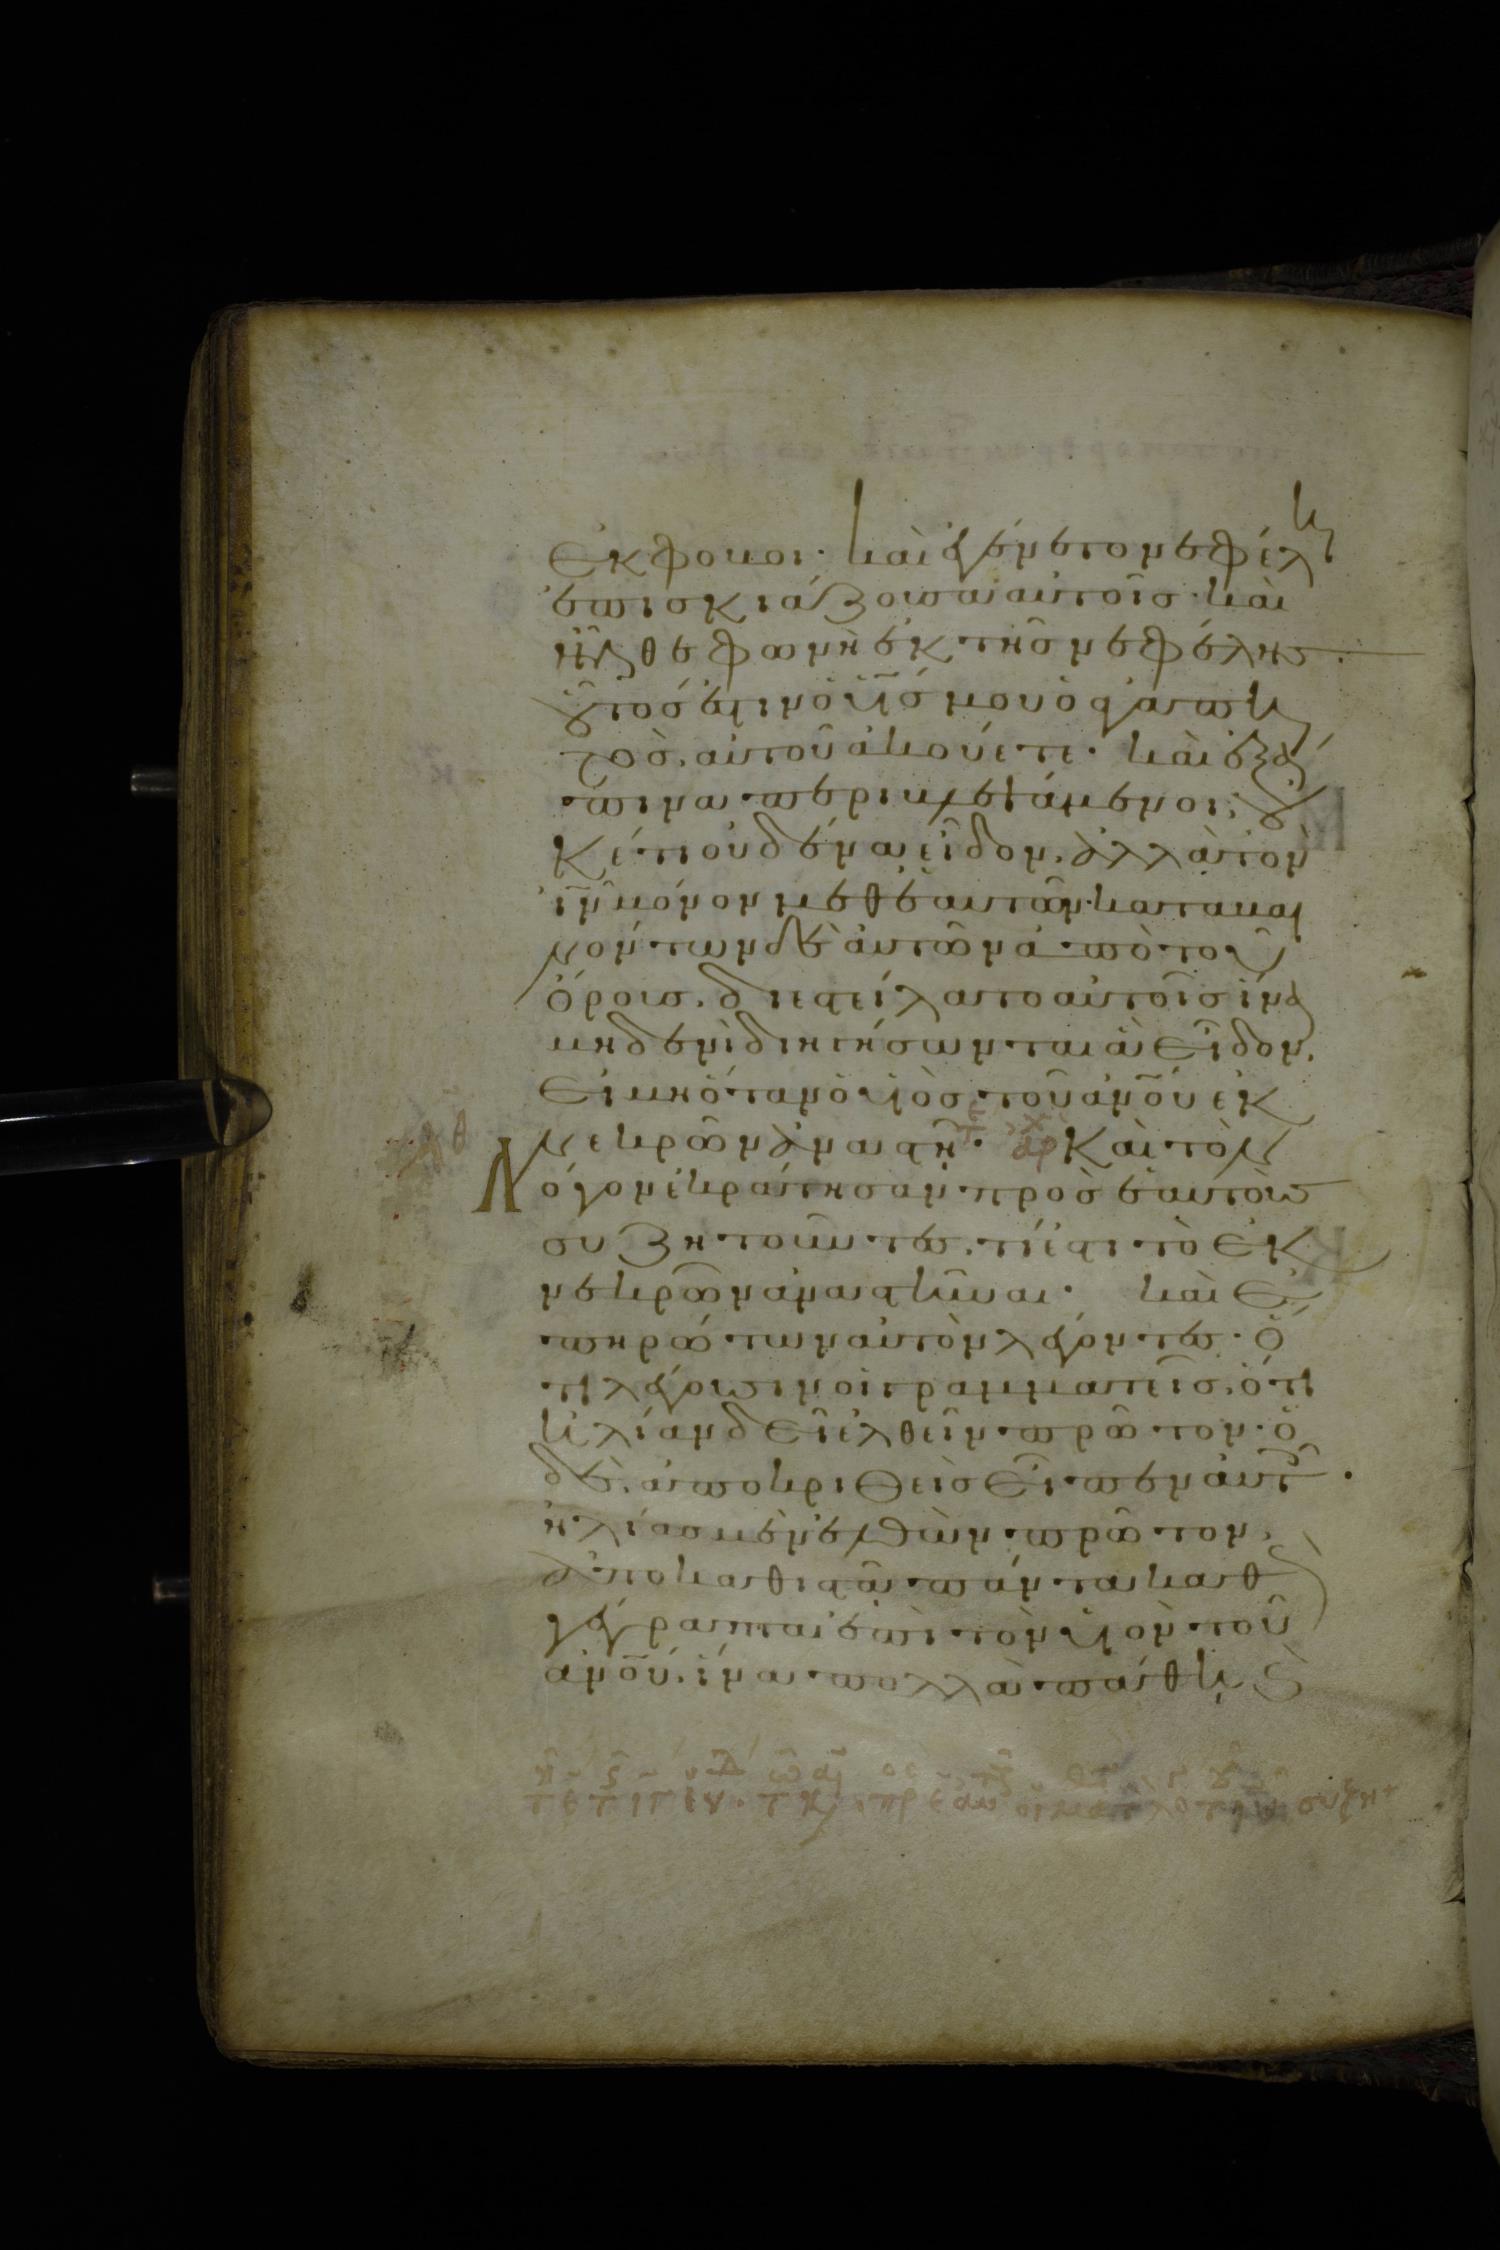 ἔκφοβοι· καὶ ἐγένετο νεφέλη
ἐπισκιάζουσα αὐτοῖς· καὶ
ἦλθε φωνὴ ἐκ τῆς νεφέλης·
οὗτός ἐστιν ὁ υἱός μου ὁ ἀγαπη
τός, αὐτοῦ ἀκούετε· καὶ ἐξά
πινα περιβλεψάμενοι, οὐ
κέτι οὐδένα εἶδον, ἀλλὰ τὸν
ιν μόνον μεθ ἑαυτῶν· καταβαι
νόντων δὲ αὐτῶν ἀπὸ τοῦ
ὄρους, διεστείλατο αὐτοῖς ἵνα
μηδενὶ διηγήσωνται ἃ εἶδον,
εἰ μὴ ὅταν ὁ υἱὸς τοῦ ανου ἐκ
νεκρῶν ἀναστῆ· καὶ τὸν
λόγον ἐκράτησαν πρὸς ἑαυτοὺς
συζητοῦντες, τί ἐστι τὸ ἐκ
νεκρῶν ἀναστῆναι· καὶ ἐ
πηρώτων αὐτὸν λέγοντες· ὅ
τι λέγουσιν οἱ γραμματεῖς, ὅτι
ἠλίαν δεῖ ἐλθεῖν πρῶτον· ὁ
δὲ, ἀποκριθεὶς εἶπεν αὐτοῖς·
ἠλίας μὲν ἐλθὼν πρῶτον,
ἀποκαθιστᾶ πάντα· καὶ πῶς
γέγραπται ἐπὶ τὸν υἱὸν τοῦ
ανου, ἵνα πολλὰ πάθη καὶ